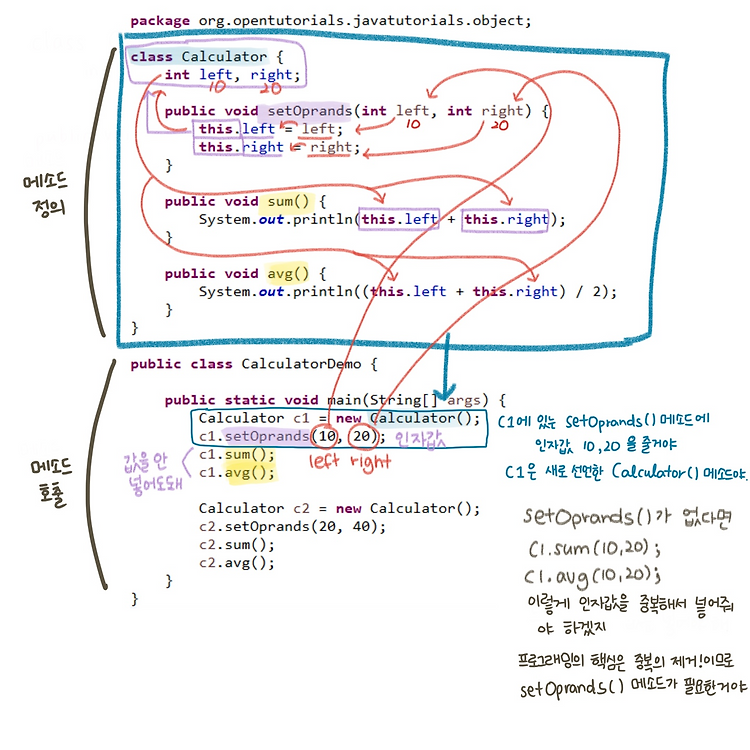 package org.opentutorials.javatutorials.object;
class Calculator {
int left, right;
10 20
public void setOprands(int left, int right) {
10 20
this.left = left;
this.right = right;
}
메소드
정의
public void sum() {
System.out.println(this.left + this.right);
}
public void avg() {
System.out.println((this.left + this.right) / 2);
}
}
public class CalculatorDemo {
public static void main(String[] args) {
Calculator c1 = new Calculator();
c1.setOprands(10, 20); 인자값
left right
c1.sum();
c1.avg();
값을 안
넣어도돼
메소드
호출
Calculator c2 = new Calculator();
c2.setOprands(20, 40);
c2.sum();
c2.avg();
}
}
C1에 있는 setOprands() 메소드에
인자값 10,20 을 줄거야
C1은 새로 선언한 Calculator() 메소드야.
setOprands()가 없다면
C1.sum(10,20);
C1.avg(10,20);
이렇게 인자값을 중복해서 넣어줘
야 하겠지
프로그래밍의 핵심은 중복의 제거!이므로
setOprands() 메소드가 필요한거야